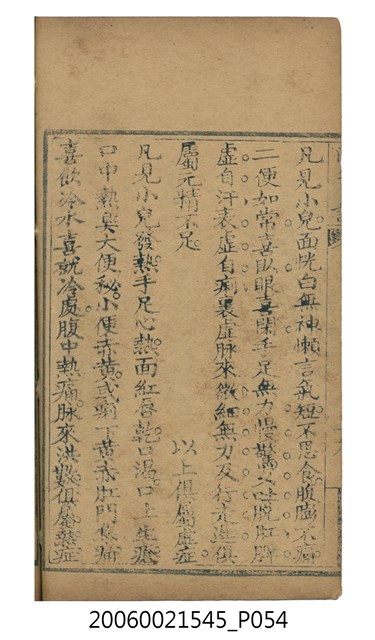 凡見小兒面恍白無神懶言氣短不思食腹膨不痛
二便如常喜臥眼喜閉手足無力慢驚久吐脫肛脾
虛自汗表虛自痢裏虛脉來微細無力及行遲俱
屬元精不足
以上俱屬虛症
凡見小兒發熱手足心熱面紅唇乾口渴口上生瘡
口中熱臭大便秘小便赤黃或痢下黃赤肛門焦痛
喜飲冷水喜就冷處腹中熱痛脉來洪數俱屬熱症
20060021545_P054